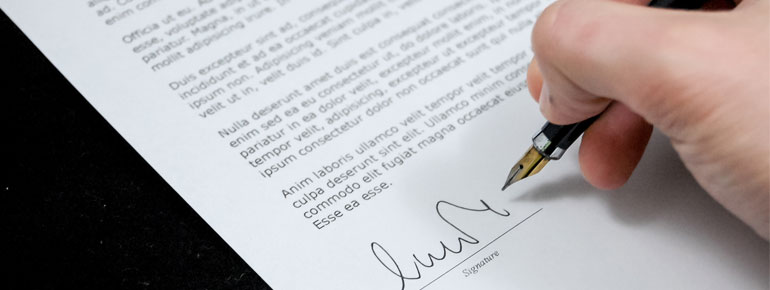 ad. Co
enim co
Officia ut eu. A
esse, voluptate adip
pariatur. Magna, in ut
mollit adipisicing irure.
Duis excepteur sint ad, conseq
incididunt et ad ea occaecat cupida
ipsum non. Adipisicing veniam mollit
velit ut in, velit duis id. Sint culpa in, velit
Nulla deserunt amet duis est consequat conse
enim sed ea eu consectetur ut, do dolore laboris,
pariatur in ea dolor velit, excepteur mollit enim,
tempor velit, adipisicing, excepteur ut excepteur tempor
ipsum consectetur dolor non occaecat sunt qui nulla
Anim laboris ullamco velit tempor velit tempor
culpa deserunt sint elit. Ullamco minim con
commodo elit fugiat magna occaecat eius
Esse ea esse.
Signature